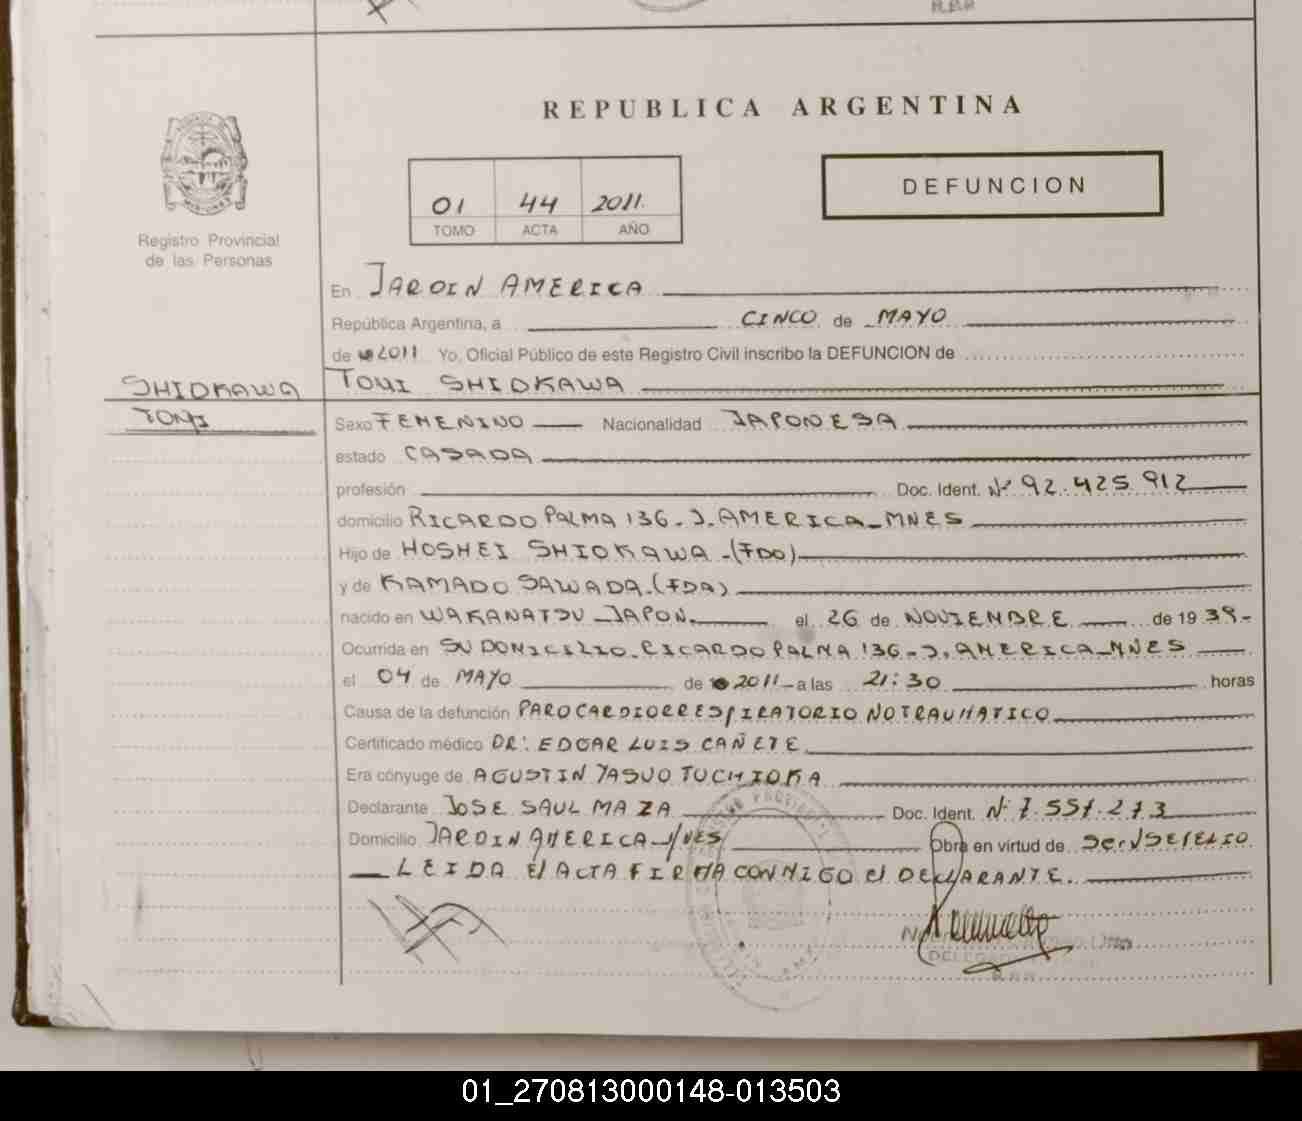 REPUBLICA ARGENTINA
DEFUNCION
01 44 2011
TOMO ACTA AÑO
Registro Provincial
de las Personas
En JARDIN AMERICA
República Argentina, a CINCO de MAYO
de 2011 Yo, Oficial Público de este Registro Civil inscribo la DEFUNCION de
SHIOKAWA TOMI SHIOKAWA
TOMI
Sexo FEMENINO Nacionalidad JAPONESA
estado CASADA
profesión Doc. Ident. Nº 92.425.912
domicilio RICARDO PALMA 136-J. AMERICA-MNES
Hijo de HOSHEI SHIOKAWA-(FDO)
y de KAMADO SAWADA.(FDA)
nacido en WAKANATSU-JAPON. el 26 de NOVIEMBRE de 19 39-
Ocurrida en SU DOMICILIO. RICARDO PALMA 136-J. AMERICA-MNES
el 04 de MAYO de 2011 a las 21:30 horas
Causa de la defunción PARO CARDIORRESPIRATORIO NO TRAUMATICO
Certificado médico DR: EDGAR LUIS CAÑETE
Era cónyuge de AGUSTIN YASUO TUCHIOKA
Declarante JOSE SAUL MAZA Doc. Ident. Nº 7.551.273
Domicilio JARDIN AMERICA-MNES Obra en virtud de SER V SEPELIO
LEIDA El ACTA FIRMA CONMIGO el DECLARANTE.
01_270813000148-013503